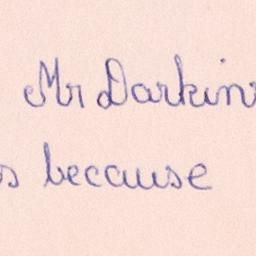 Mr Darkin
because